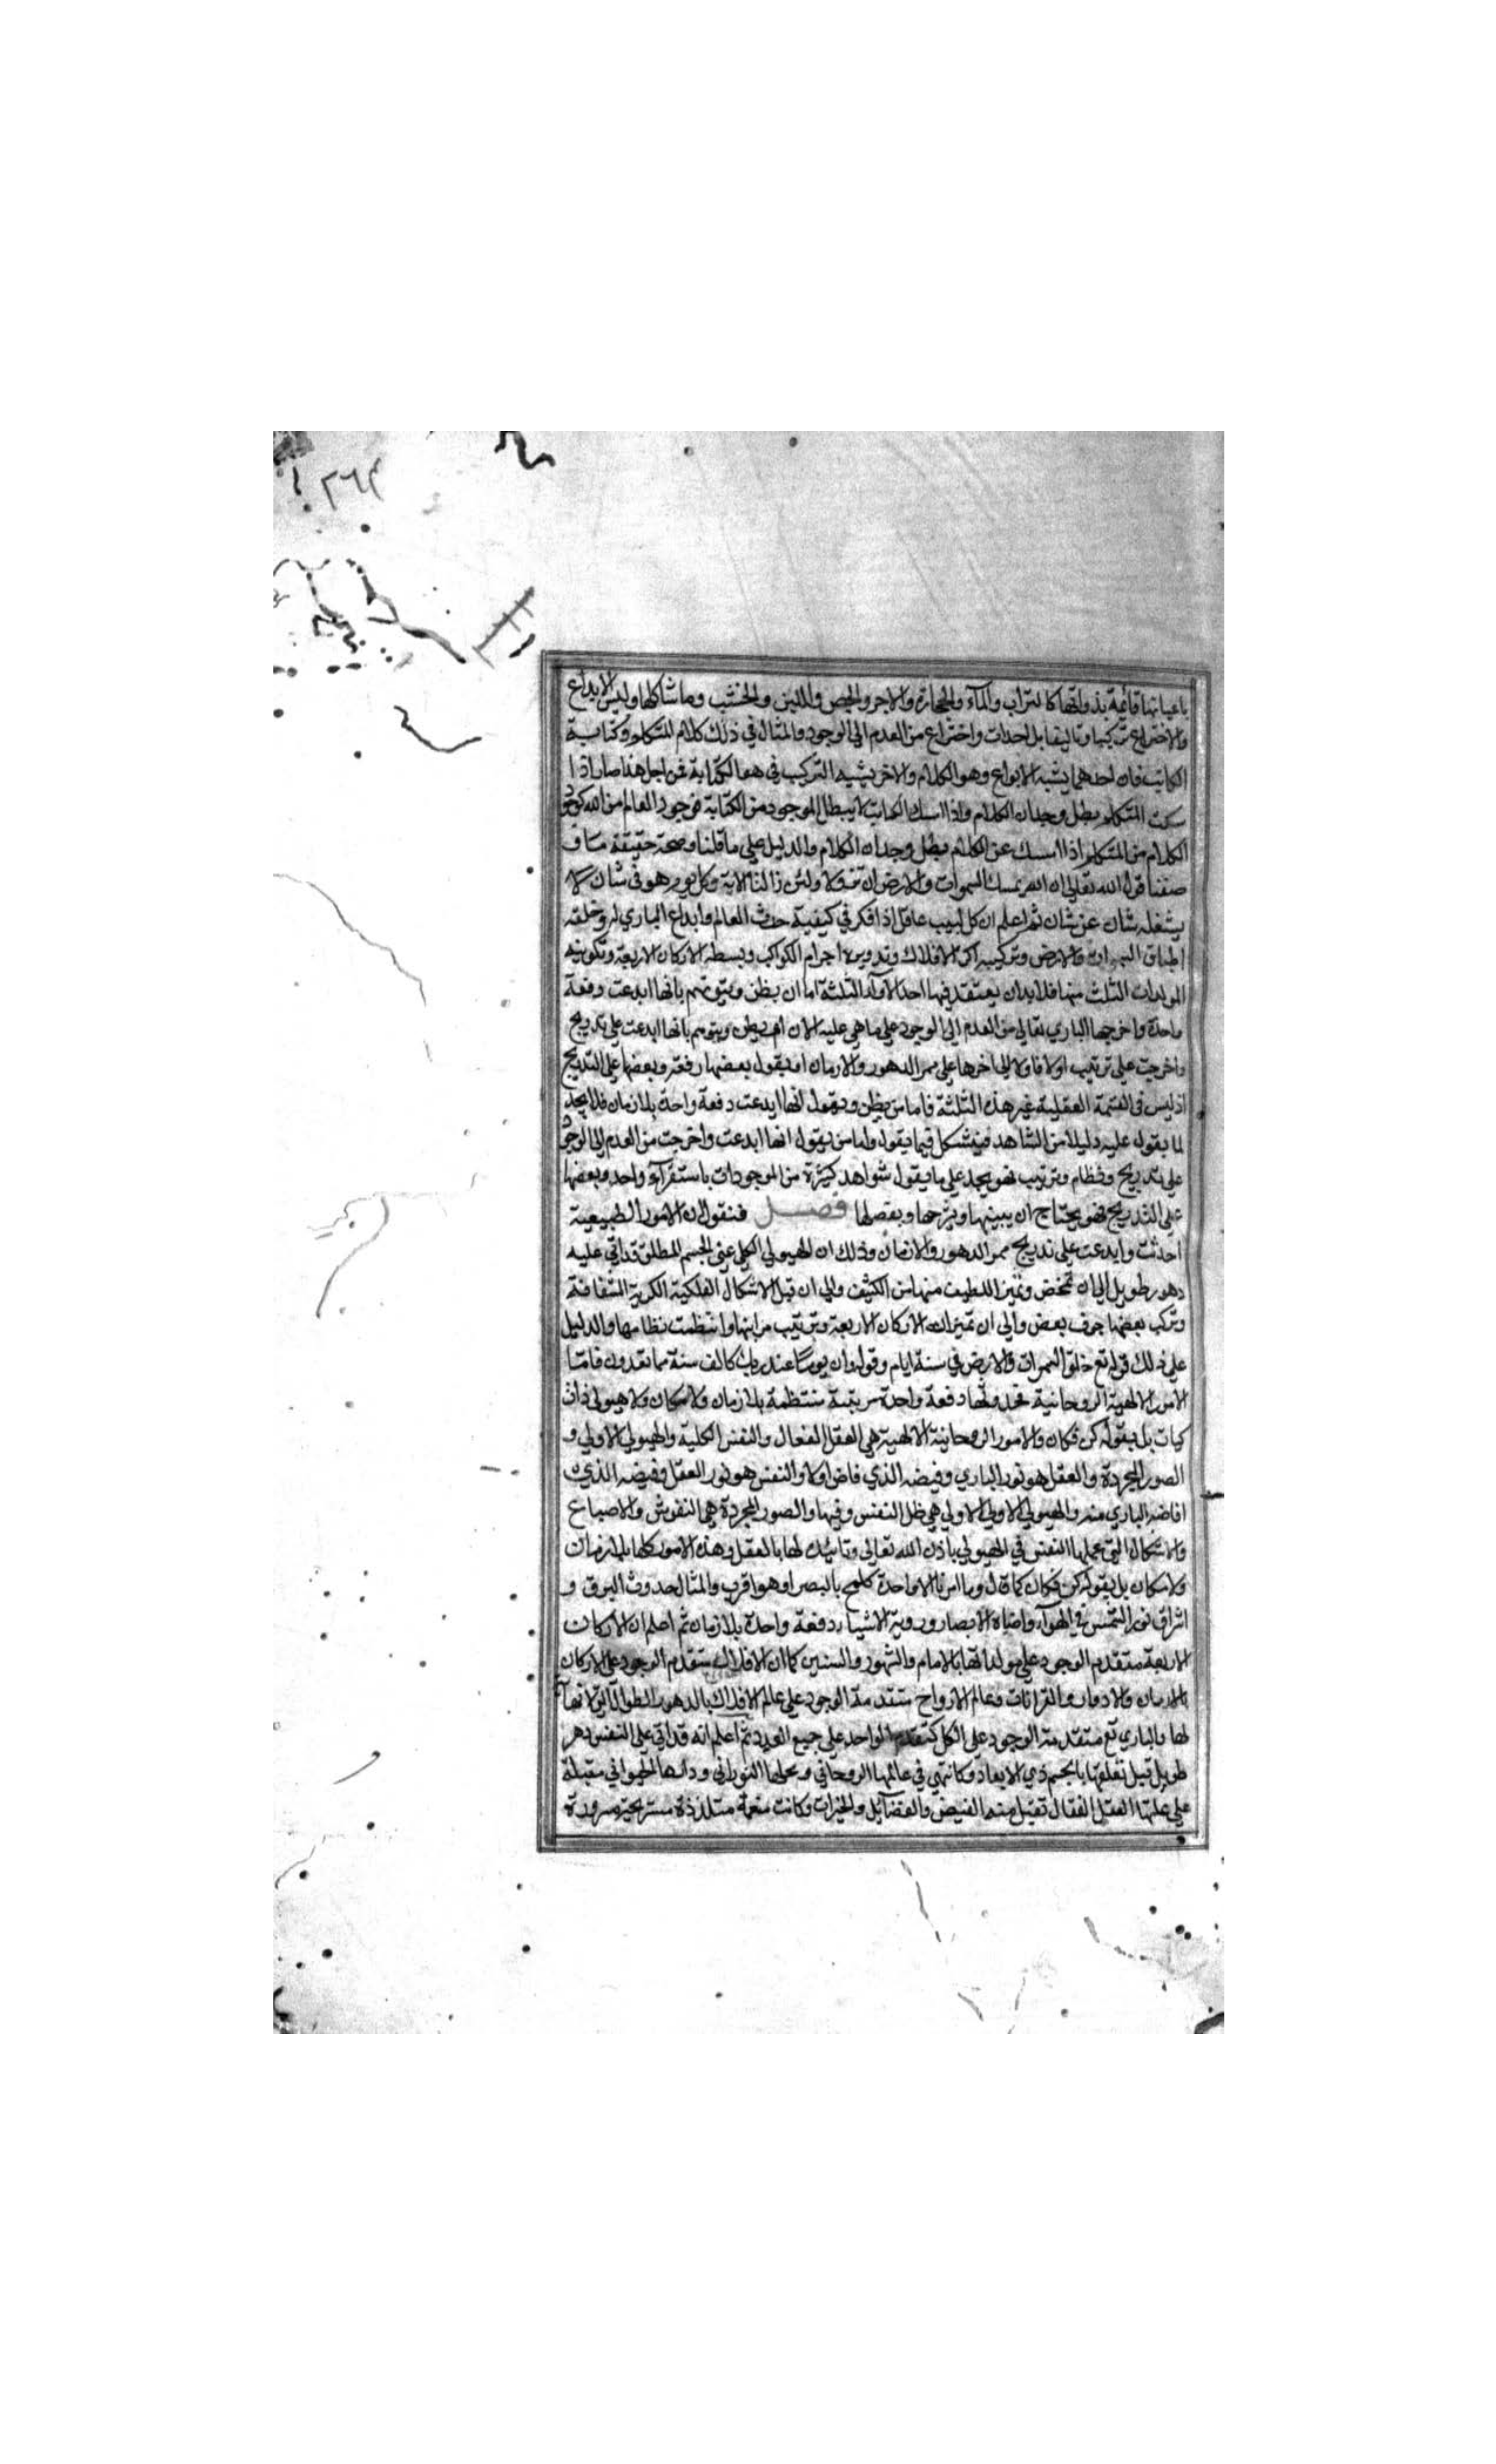 ٢٦٣
باعيانها قائمة بذواتها كالتراب والمآء والحجارة والاجر والجص واللبن والخشب وما شاكلها وليس الابداع
والاختراع تركيبا وتاليفا بل احداث واختراع من العدم الى الوجود والمثال في ذلك كلام المتكلم وكتابة
الكاتب فان احدهما يشبه الابداع وهو الكلام والاخر يشبه التركيب وهو الكتابة فمن اجل هذا صار اذا
سكت المتكلم بطل وجدان الكلام واذا امسك الكاتب لا يبطل الموجود من الكتابة فوجود العالم من الله كوجود
الكلام من المتكلم اذا امسك عن الكلام بطل وجدان الكلام والدليل علي ما قلنا وصحة حقيقة ما
صفنا قول الله تعالي ان الله يمسك السموات والارض ان تزولا ولئن زالتا الاية وكل يوم هو في شان لا
يشغله شان عن شان ثم اعلم ان كل لبيب عاقل اذا فكر في كيفية حدث العالم وابداع الباري له وخلقه
اطباق السموات والارض وتركيبه اكر الافلاك وتدويره اجرام الكواكب وبسطه الاركان الاربعة وتكوينه
المولدات الثلث منها فلا بد ان يعتقد فيها احد الآراء الثلثة اما ان يظن ويتوهم بانها ابدعت دفعة
واحدة واخرجها الباري تعالي من العدم الي الوجود علي ما هي عليه الان ام يظن ويتوهم بانها ابدعت علي تدريج
واخرجت علي ترتيب اولا فاولا الي اخرها علي ممر الدهور والازمان او يقول بعضها دفعة وبعضها علي التدريج
اذ ليس في القسمة العقلية غير هذه الثلثة فاما من يظن ويقول انها ابدعت دفعة واحدة بلا زمان فلا يجد
لما يقول عليه دليلا من الشاهد فيتشكل فيما يقول واما من يقول انها ابدعت واخرجت من العدم الي الوجود
علي تدريج ونظام وترتيب فهو يجد علي ما يقول شواهد كثيرة من الموجودات باستقرآء واحد وبعضها
علي التدريج فهو يحتاج ان يبينها ويشرحها ويفصلها فصل فنقول ان الامور الطبيعية
احدثت وابدعت علي تدريج ممر الدهور والازمان وذلك ان الهيولي الكلي عني الجسم المطلق قد اتي عليه
دهر طويل الي ان تمخض وتميز اللطيف منها من الكثيف والي ان قبل الاشكال الفلكية الكرية الشفافة
وتركب بعضها جوف بعض والي ان تميزت الاركان الاربعة وترتيب مراتبها وانتظمت نظامها والدليل
علي ذلك قوله تع خلق السموات والارض في ستة ايام وقوله وان يوما عند ربك كالف سنة مما تعدون فاما
الامور الالهية الروحانية فحدوثها دفعة واحدة مرتبة منتظمة بلا زمان ولا مكان ولا هيولي ذات
كيات بل بقوله كن فكان والامور الروحانية الالهية هي العقل الفعال والنفس الكلية والهيولي الاولي و
الصور المجردة والعقل هو نور الباري وفيضه الذي فاض اولا والنفس هو نور العقل وفيضه الذي
افاضه الباري منه والهيولي الاولي الاولي هي ظل النفس وفيها والصور المجردة هي النقوش والاصباغ
والاشكال التي عملها النفس في الهيولي باذن الله تعالي وتائيده لها بالعقل وهذه الامور كلها بلا زمان
ولا مكان بل بقوله كن فكان كما قال وما امرنا الا واحدة كلمح بالبصر او هو اقرب والمثال حدوث البرق و
اشراق نور الشمس في الهوآء واضاءة الابصار وروية الاشياء دفعة واحدة بلا زمان ثم اعلم ان الاركان
الاربعة متقدم الوجود علي مولداتها بالايام والشهور والسنين كما ان الافلاك متقدم الوجود علي الاركان
بالازمان والادوار والقرانات وعالم الارواح متقدمة الوجود علي عالم الافلاك بالدهور الطوال التي لا نهآية
لها والباري تع متقدمة الوجود علي الكل كتقدم الواحد علي جميع العدد ثم اعلم انه قد اتي علي النفس دهر
طويل قبل تعلقها بالجسم ذي الابعاد وكانت هي في عالمها الروحاني ومحلها النوراني ودارها الحيواني مقبلة
علي علتها العقل الفعال تقبل منه الفيض والفضآيل والخيرات وكانت منعمة متلذذة مستريحة مسرورة